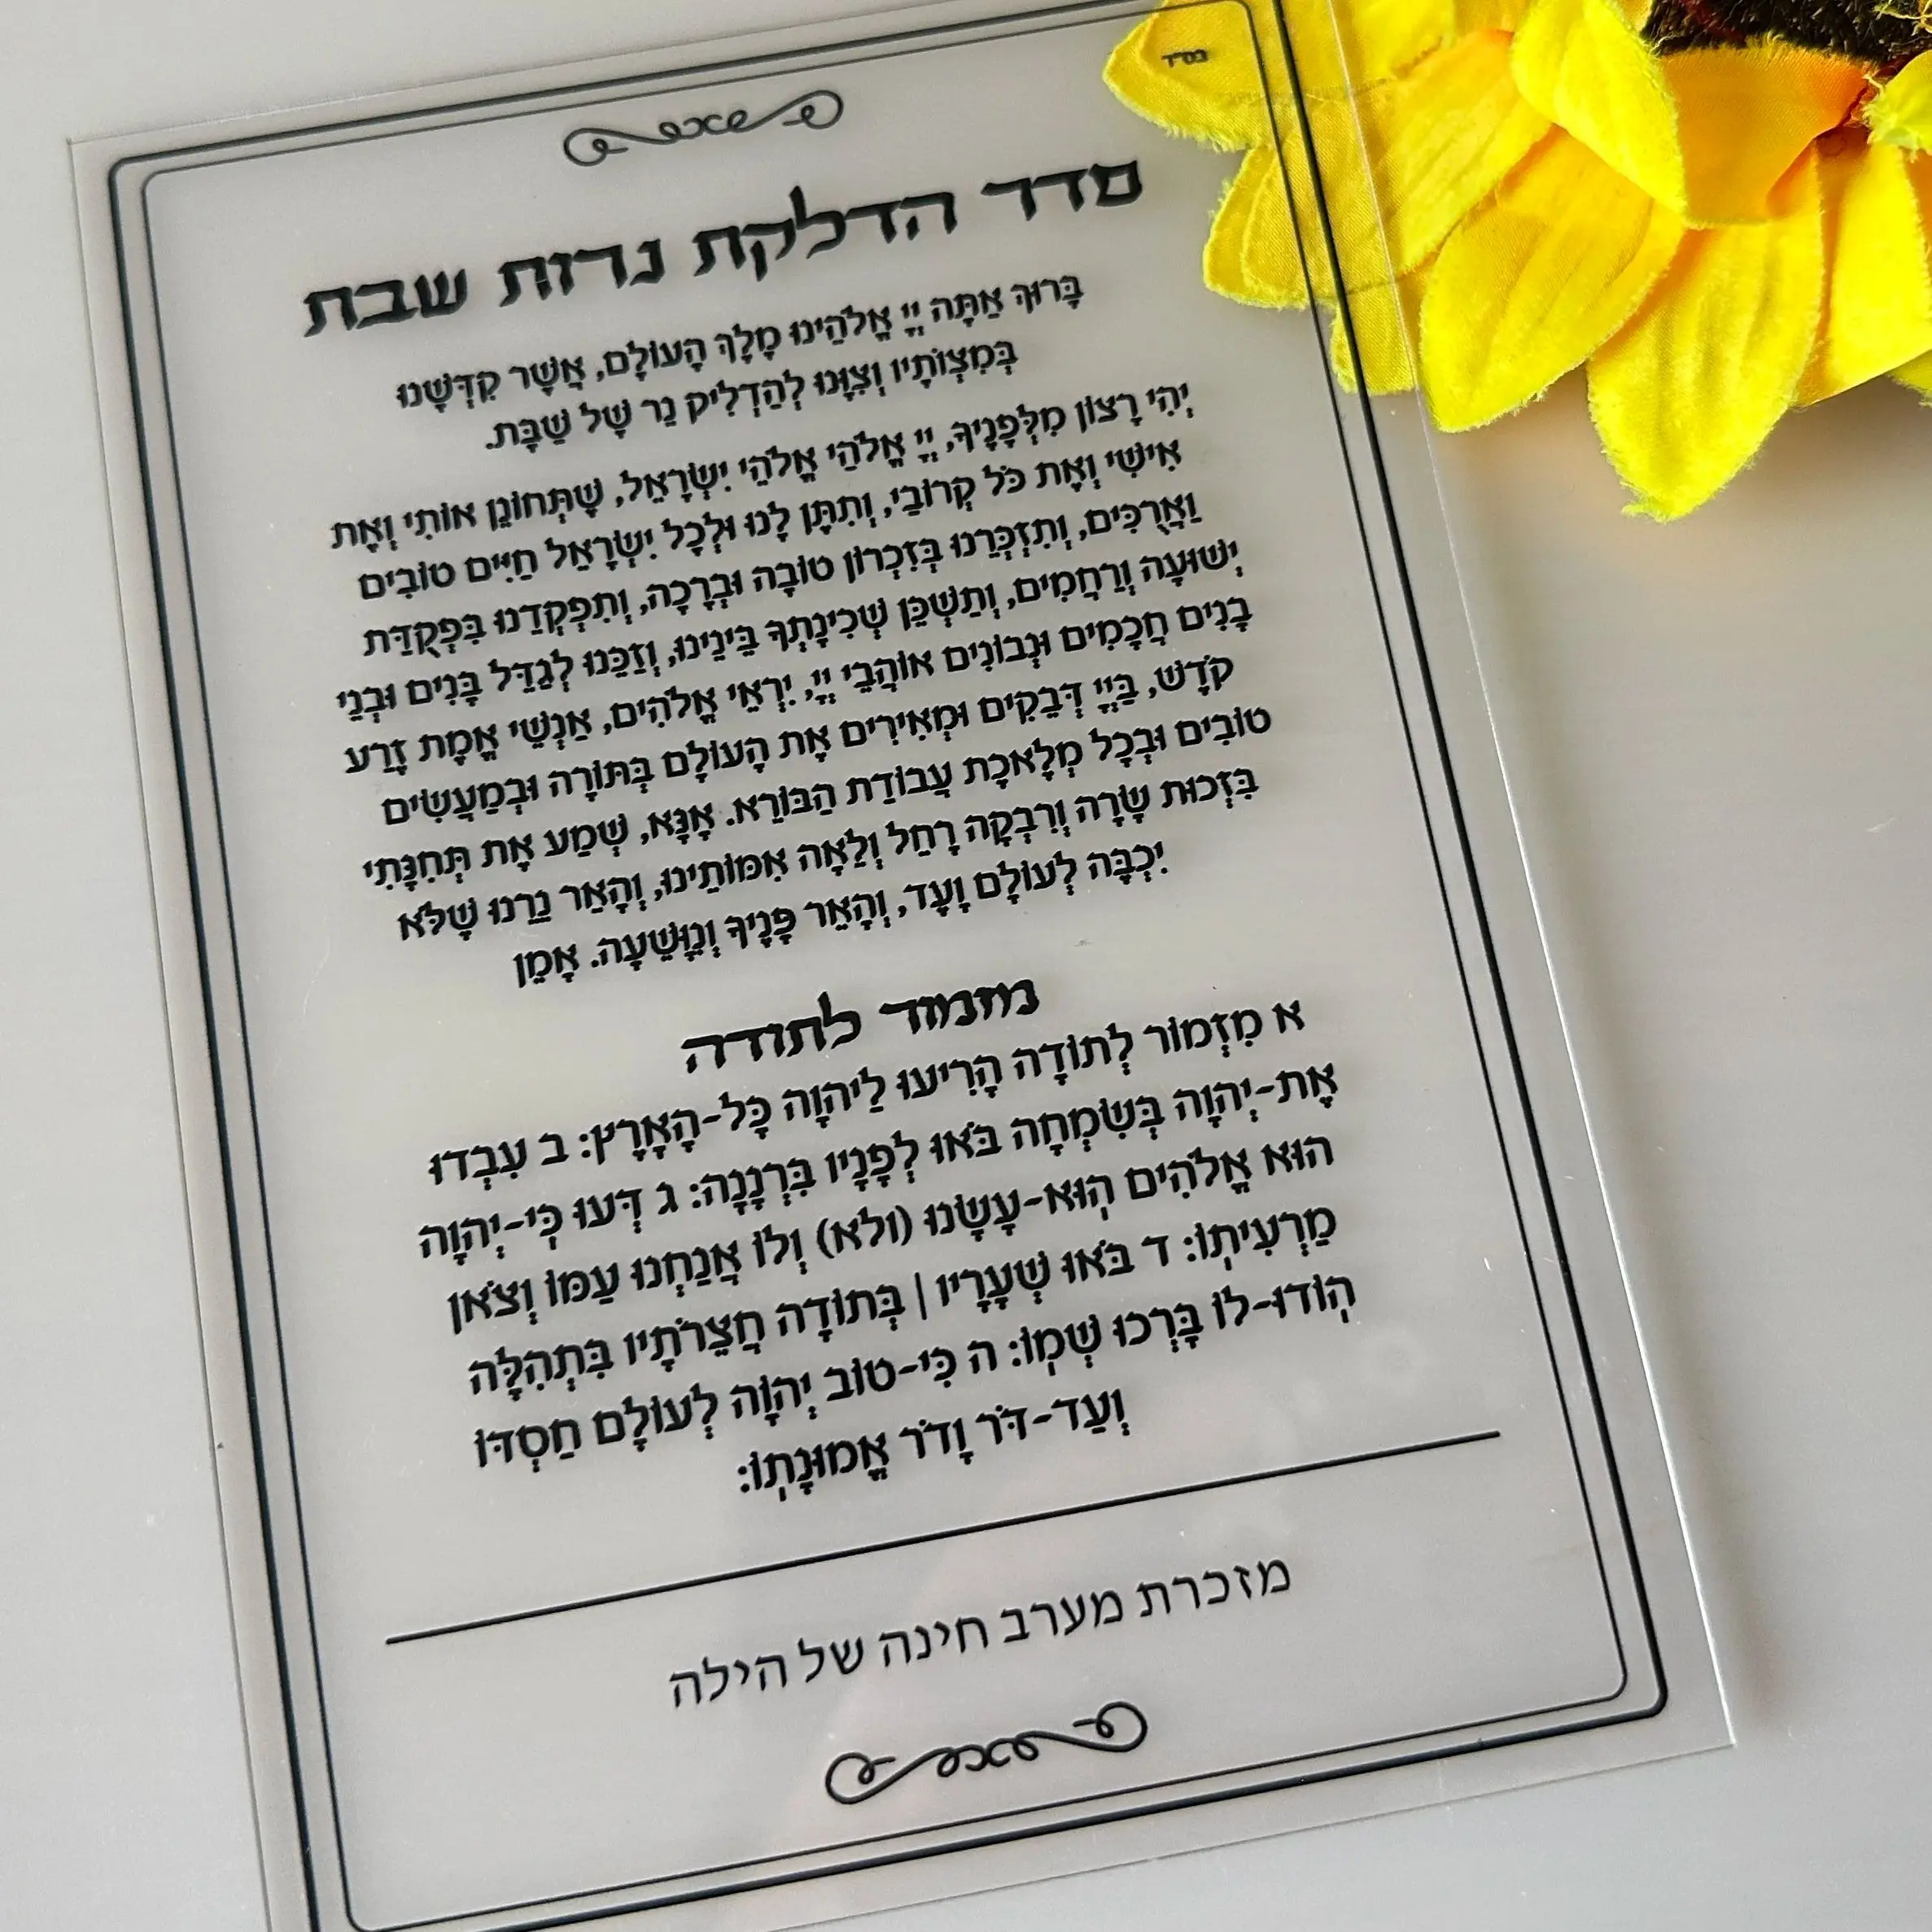 בס״ד
סדר הדלקת נרות שבת
בָּרוּךְ אַתָּה יְיָ אֱלֹהֵינוּ מֶלֶךְ הָעוֹלָם, אֲשֶׁר קִדְּשָׁנוּ
בְּמִצְוֹתָיו וְצִוָּנוּ לְהַדְלִיק נֵר שֶׁל שַׁבָּת.
יְהִי רָצוֹן מִלְּפָנֶיךָ, יְיָ אֱלֹהַי אֱלֹהֵי יִשְׂרָאֵל, שֶׁתְּחוֹנֵן אוֹתִי וְאֶת
אִישִׁי וְאֶת כֹּל קְרוֹבַי, וְתִתֵּן לָנוּ וּלְכָל יִשְׂרָאֵל חַיִּים טוֹבִים
וַאֲרֻכִּים, וְתִזְכְּרֵנוּ בְּזִכְרוֹן טוֹבָה וּבְרָכָה, וְתִפְקְדֵנוּ בִּפְקֻדַּת
יְשׁוּעָה וְרַחֲמִים, וְתַשְׁכֵּן שְׁכִינָתְךָ בֵּינֵינוּ, וְזַכֵּנוּ לְגַדֵּל בָּנִים וּבְנֵי
בָנִים חֲכָמִים וּנְבוֹנִים אוֹהֲבֵי יְיָ, יִרְאֵי אֱלֹהִים, אַנְשֵׁי אֱמֶת זֶרַע
קֹדֶשׁ, בַּיְיָ דְּבֵקִים וּמְאִירִים אֶת הָעוֹלָם בְּתּוֹרָה וּבְמַעֲשִׂים
טוֹבִים וּבְכָל מְלָאכֶת עֲבוֹדַת הַבּוֹרֵא. אָנָּא, שְׁמַע אֶת תְּחִנָּתִי
בִּזְכוּת שָׂרָה וְרִבְקָה רָחֵל וְלֵאָה אִמּוֹתֵינוּ, וְהָאֵר נֵרֵנוּ שֶׁלֹּא
יִכְבֶּה לְעוֹלָם וָעֶד, וְהָאֵר פָּנֶיךָ וְנִוָּשֵׁעָה. אָמֵן
מזמור לתודה
א מִזְמוֹר לְתוֹדָה הָרִיעוּ לַיהוָה כָּל-הָאָרֶץ: ב עִבְדוּ
אֶת-יְהוָה בְּשִׂמְחָה בֹּאוּ לְפָנָיו בִּרְנָנָה: ג דְּעוּ כִּי-יְהוָה
הוּא אֱלֹהִים הוּא-עָשָׂנוּ (ולא) וְלוֹ אֲנַחְנוּ עַמּוֹ וְצֹאן
מַרְעִיתוֹ: ד בֹּאוּ שְׁעָרָיו | בְּתוֹדָה חֲצֵרֹתָיו בִּתְהִלָּה
הוֹדוּ-לוֹ בָּרְכוּ שְׁמוֹ: ה כִּי-טוֹב יְהוָה לְעוֹלָם חַסְדּוֹ
וְעַד-דֹּר וָדֹר אֱמוּנָתוֹ:
מזכרת מערב חינה של הילה